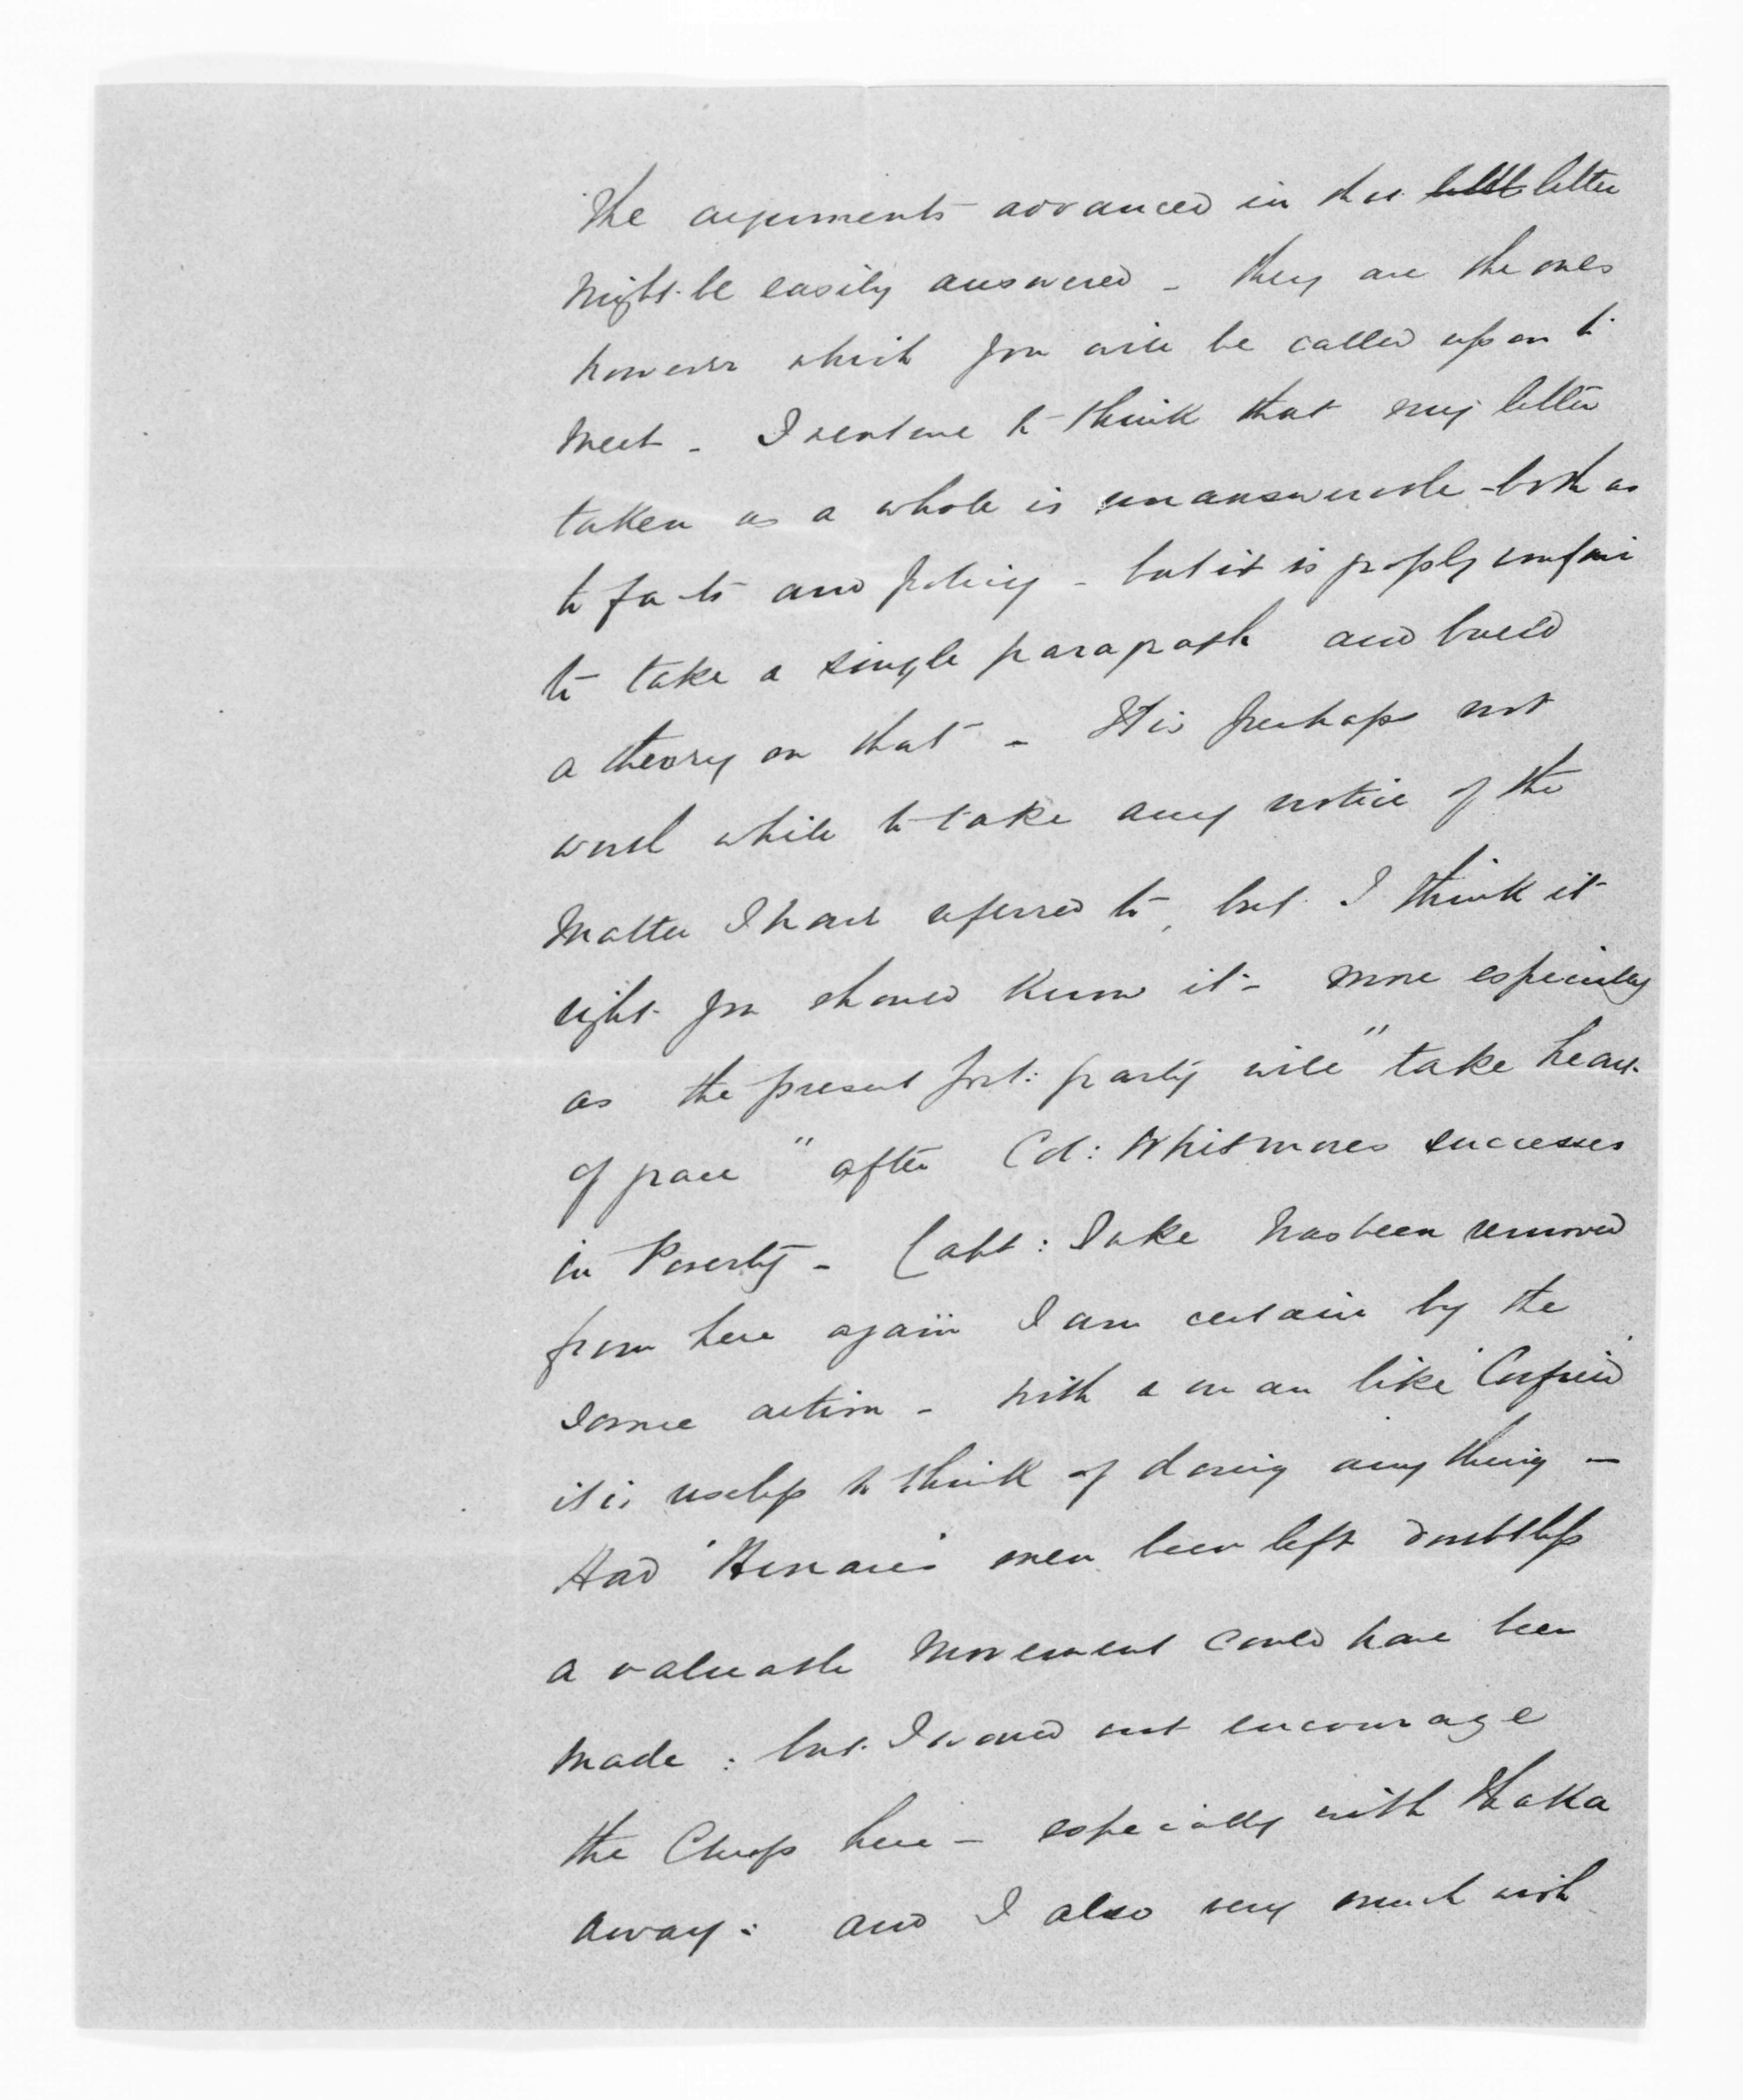 The arguments advanced in this letter
might be easily answered - they are the ones
however which you will be called upon to
meet - I venture to think that my letter
taken as a whole is unanswerable - both as
to facts and policy - but it is grossly unfair
to take a single paragraph and build
a theory on that - It is perhaps not
worth while to take any notice of the
matter I have referred to, but I think it
right you should know it - more especially
as the present Govt: party will "take heart
of grace" after Col: Whitmores successes
in Poverty - Capt: Tuke has been removed
from here again I am certain by the
same action - with a man like
it is useless to think of doing any thing -
Had Henare's men been left doubtless
a valuable movement could have been
made : but I would not encourage
the Chiefs here - especially with Ihaka
away : and I also very much wish